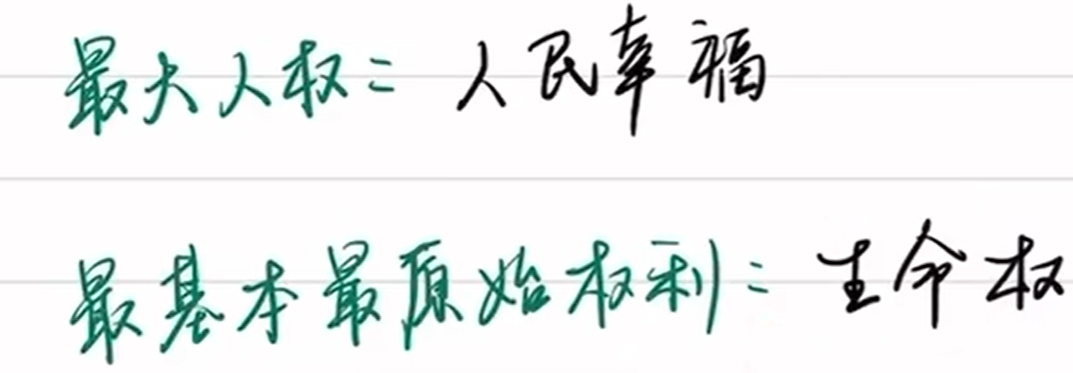 最大人权：人民幸福
最基本最原始权利：生命权